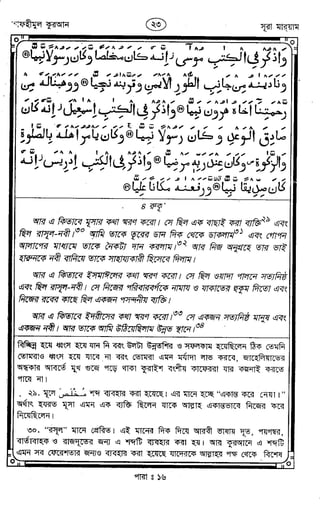 তাফহীমুল কুরআন
২৩
সূরা মারয়াম
وَاذْكُرْ فِي الْكِتٰبِ مُوسٰى اِنَّهٗ كَانَ مُخْلَصًا وَّكَانَ رَسُوْلًا نَّبِيًّا
وَنَادَيْنٰهُ مِنْ جَانِبِ الطُّوْرِ الْاَيْمَنِ وَقَرَّبْنٰهُ نَجِيًّا وَوَهَبْنَا لَهٗ مِنْ
رَّحْمَتِنَا اَخَاهُ هٰرُوْنَ نَبِيًّا وَاذْكُرْ فِي الْكِتٰبِ اِسْمٰعِيْلَ اِنَّهٗ كَانَ
صَادِقَ الْوَعْدِ وَكَانَ رَسُوْلًا نَّبِيًّا وَكَانَ يَاْمُرُ اَهْلَهٗ بِالصَّلٰوةِ
وَالزَّكٰوةِ وَكَانَ عِنْدَ رَبِّهٖ مَرْضِيًّا وَاذْكُرْ فِي الْكِتٰبِ اِدْرِيْسَ اِنَّهٗ
كَانَ صِدِّيْقًا نَّبِيًّا وَّرَفَعْنٰهُ مَكَانًا عَلِيًّا
৪ রুকূ'
আর এ কিতাবে মূসার কথা স্মরণ করো। সে ছিল এক বাছাই করা ব্যক্তি২৯ এবং
ছিল রাসূল-নবী।৩০ আমি তাকে তূরের ডান দিক থেকে ডাকলাম৩১ এবং গোপন
আলাপের মাধ্যমে তাকে নৈকট্য দান করলাম।৩২ আর নিজ অনুগ্রহে তার ভাই
হারুনকে নবী বানিয়ে তাকে সাহায্যকারী হিসেবে দিলাম।
আর এ কিতাবে ইসমাঈলের কথা স্মরণ করো। সে ছিল ওয়াদা পালনে সত্যনিষ্ঠ
এবং ছিল রাসূল-নবী। সে নিজের পরিবারবর্গকে নামায ও যাকাতের হুকুম দিতো এবং
নিজের রবের কাছে ছিল একজন পছন্দনীয় ব্যক্তি।
আর এ কিতাবে ইদরীসের কথা স্মরণ করো।৩৩ সে একজন সত্যনিষ্ঠ মানুষ এবং
একজন নবী। আর তাকে আমি উঠিয়েছিলাম উন্নত স্থানে।৩৪
বিচ্ছিন্ন হয়ে ধ্বংস হয়ে যান নি বরং উলটা উন্নতশির ও সফলকাম হয়েছিলেন ঠিক তেমনি
তোমরাও ধ্বংস হয়ে যাবে না বরং তোমরা এমন মর্যাদা লাভ করবে, জাহেলিয়াতের
অন্ধকার আবর্তে মুখ গুজে পড়ে থাকা কুরাইশ বংশীয় কাফেররা যার কল্পনাই করতে
পারে না।
২৯. মূলে مخلص শব্দ ব্যবহার করা হয়েছে। এর মানে হচ্ছে "একান্ত করে নেয়া।"
অর্থাৎ হযরত মূসা এমন এক ব্যক্তি ছিলেন যাকে আল্লাহ একান্তভাবে নিজের করে
নিয়েছিলেন।
৩০. "রসূল" মানে প্রেরিত। এই মানের দিক দিয়ে আরবী ভাষায় দূত, পয়গম্বর,
বার্তাবাহক ও রাজদূতের জন্য এ শব্দটি ব্যবহার করা হয়। আর কুরআনে এ শব্দটি
এমন সব ফেরেশতার জন্যও ব্যবহার করা হয়েছে যাদেরকে আল্লাহর পক্ষ থেকে বিশেষ
পারা : ১৬